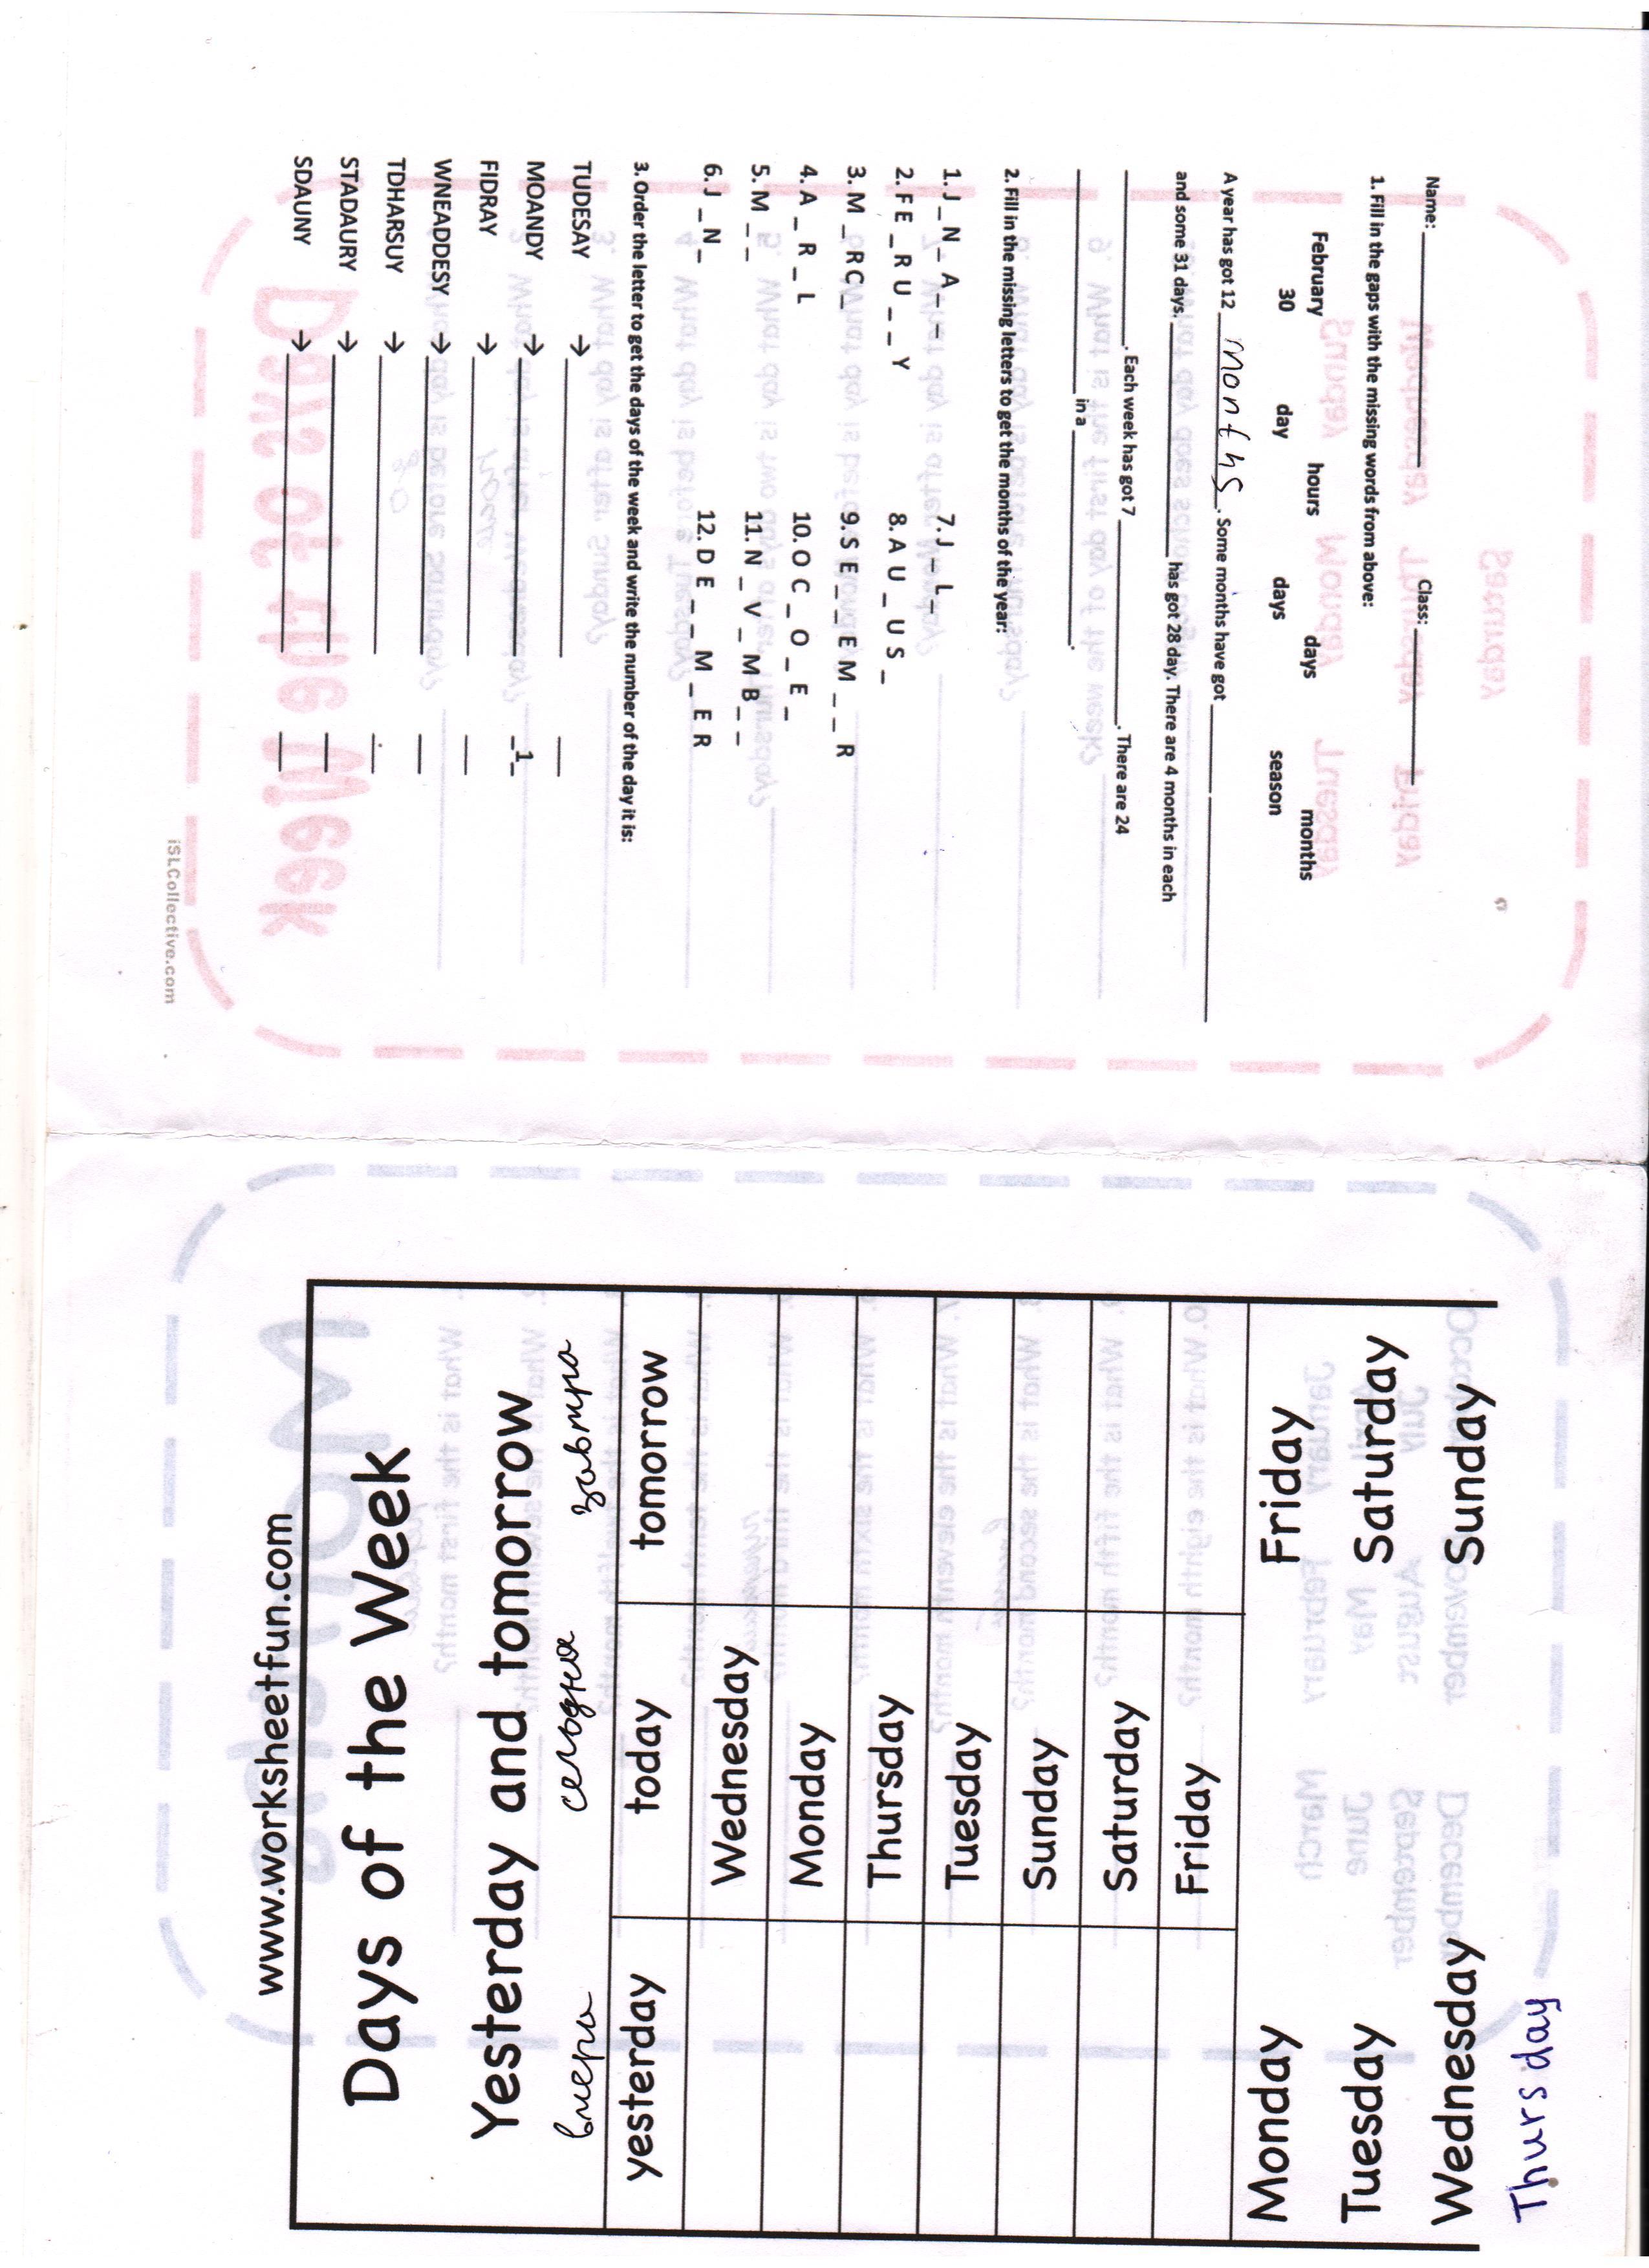 Name: ____________ Class: ____________
1. Fill in the gaps with the missing words from above:
February hours days months
30 day days season
A year has got 12 months. Some months have got ____________
and some 31 days. ____________ has got 28 day. There are 4 months in each
____________. Each week has got 7 ____________. There are 24
____________ in a ____________.
2. Fill in the missing letters to get the months of the year:
1. J _ N _ A _ _ 7. J _ L _
2. F E _ R U _ _ Y 8. A U _ U S _
3. M _ R C _ 9. S E _ _ E M _ _ R
4. A _ R _ L 10. O C _ O _ E _
5. M _ _ 11. N _ V _ M B _ _
6. J _ N _ 12. D E _ _ M _ E R
3. Order the letter to get the days of the week and write the number of the day it is:
TUDESAY → ____________ __
MOANDY → ____________ _1_
FIDRAY → ____________ __
WNEADDESY → ____________ __
TDHARSUY → ____________ __
STADAURY → ____________ __
SDAUNY → ____________ __
iSLCollective.com
www.worksheetfun.com
Days of the Week
Yesterday and tomorrow
вчера сегодня завтра
yesterday today tomorrow
Wednesday
Monday
Thursday
Tuesday
Sunday
Saturday
Friday
Monday Friday
Tuesday Saturday
Wednesday Sunday
Thursday